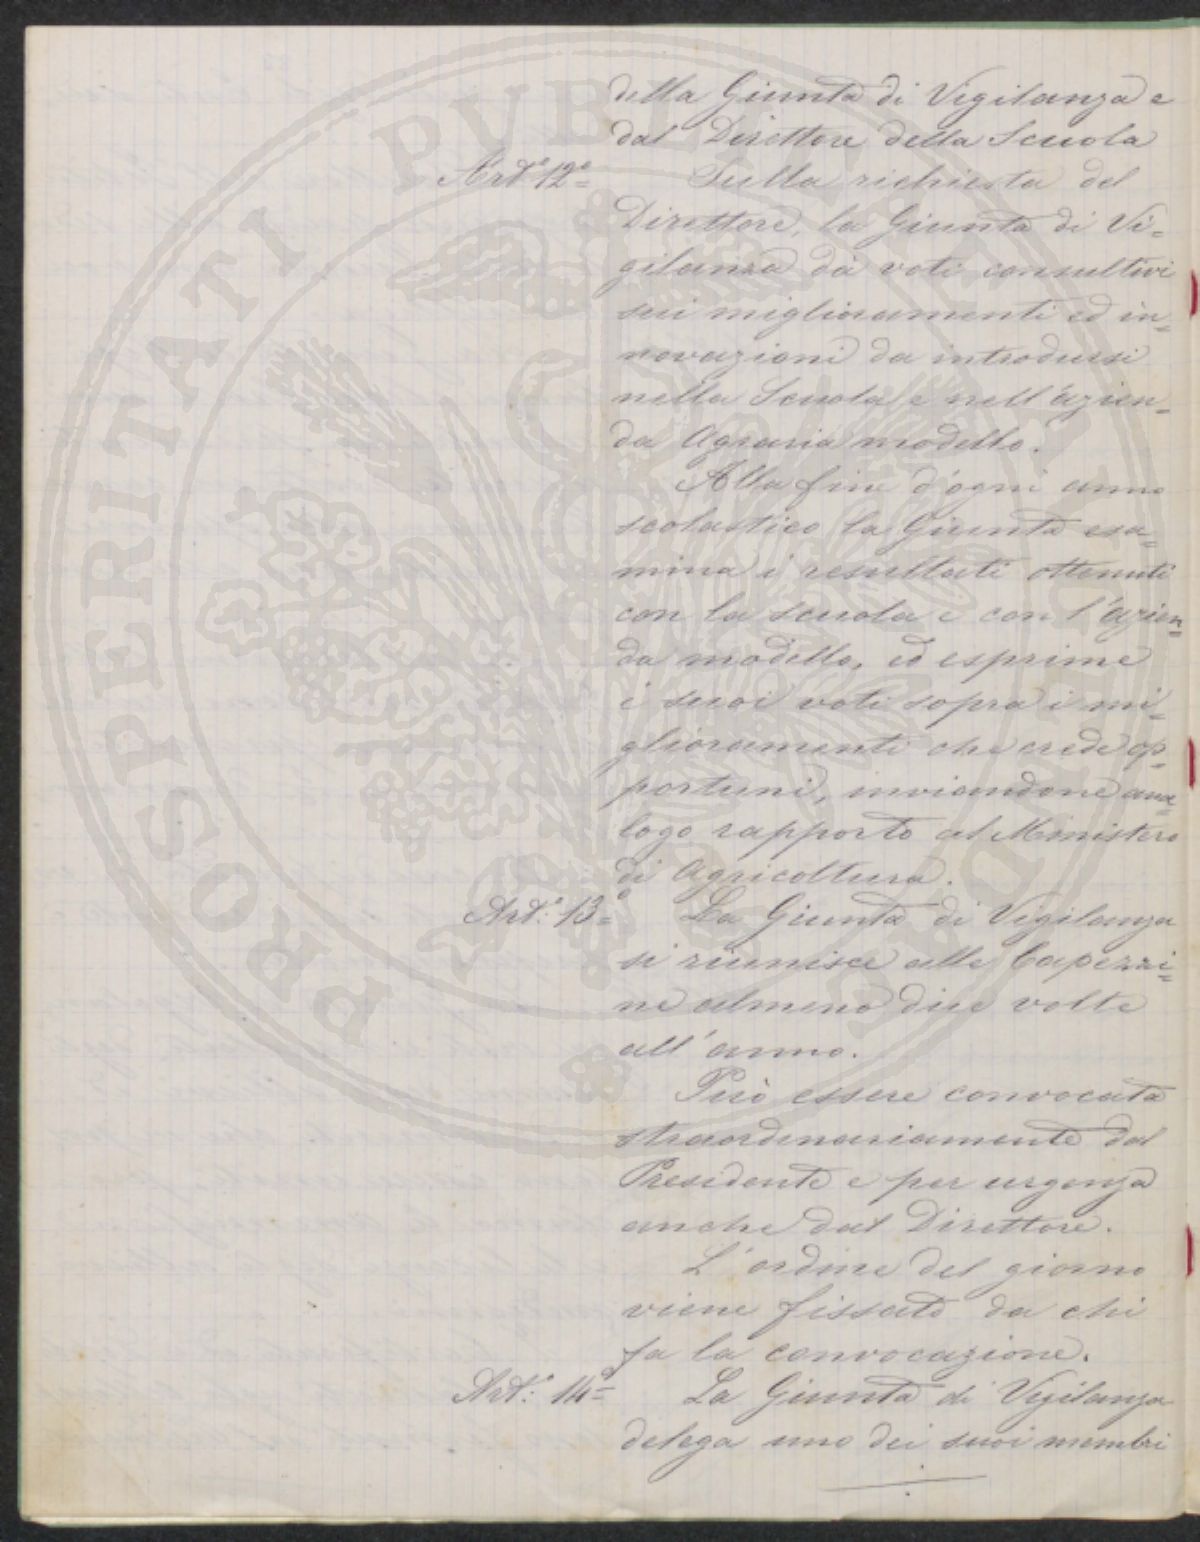 della Giunta di Vigilanza e
dal Direttore della Scuola
Art.° 12° Sulla richiesta del
Direttore, la Giunta di Vi=
gilanza dà voti consultivi
sui miglioramenti ed in=
novazioni da introdursi
nella Scuola e nell'azien=
da Agraria modello.
Alla fine d'ogni anno
scolastico la Giunta esa=
mina i resultati ottenuti
con la scuola e con l'azien=
da modello, ed esprime
i suoi voti sopra i mi=
glioramenti che crede op=
portuni, inviandone ana=
logo rapporto al Ministero
di Agricoltura.
Art.° 13° La Giunta di Vigilanza
si riunisce alle Capezzi=
ne almeno due volte
all'anno.
Può essere convocata
straordinariamente dal
Presidente e per urgenza
anche dal Direttore.
L'ordine del giorno
viene fissato da chi
fa la convocazione.
Art.° 14° La Giunta di Vigilanza
delega uno dei suoi membri
PROSPERITATI PUBLICAE